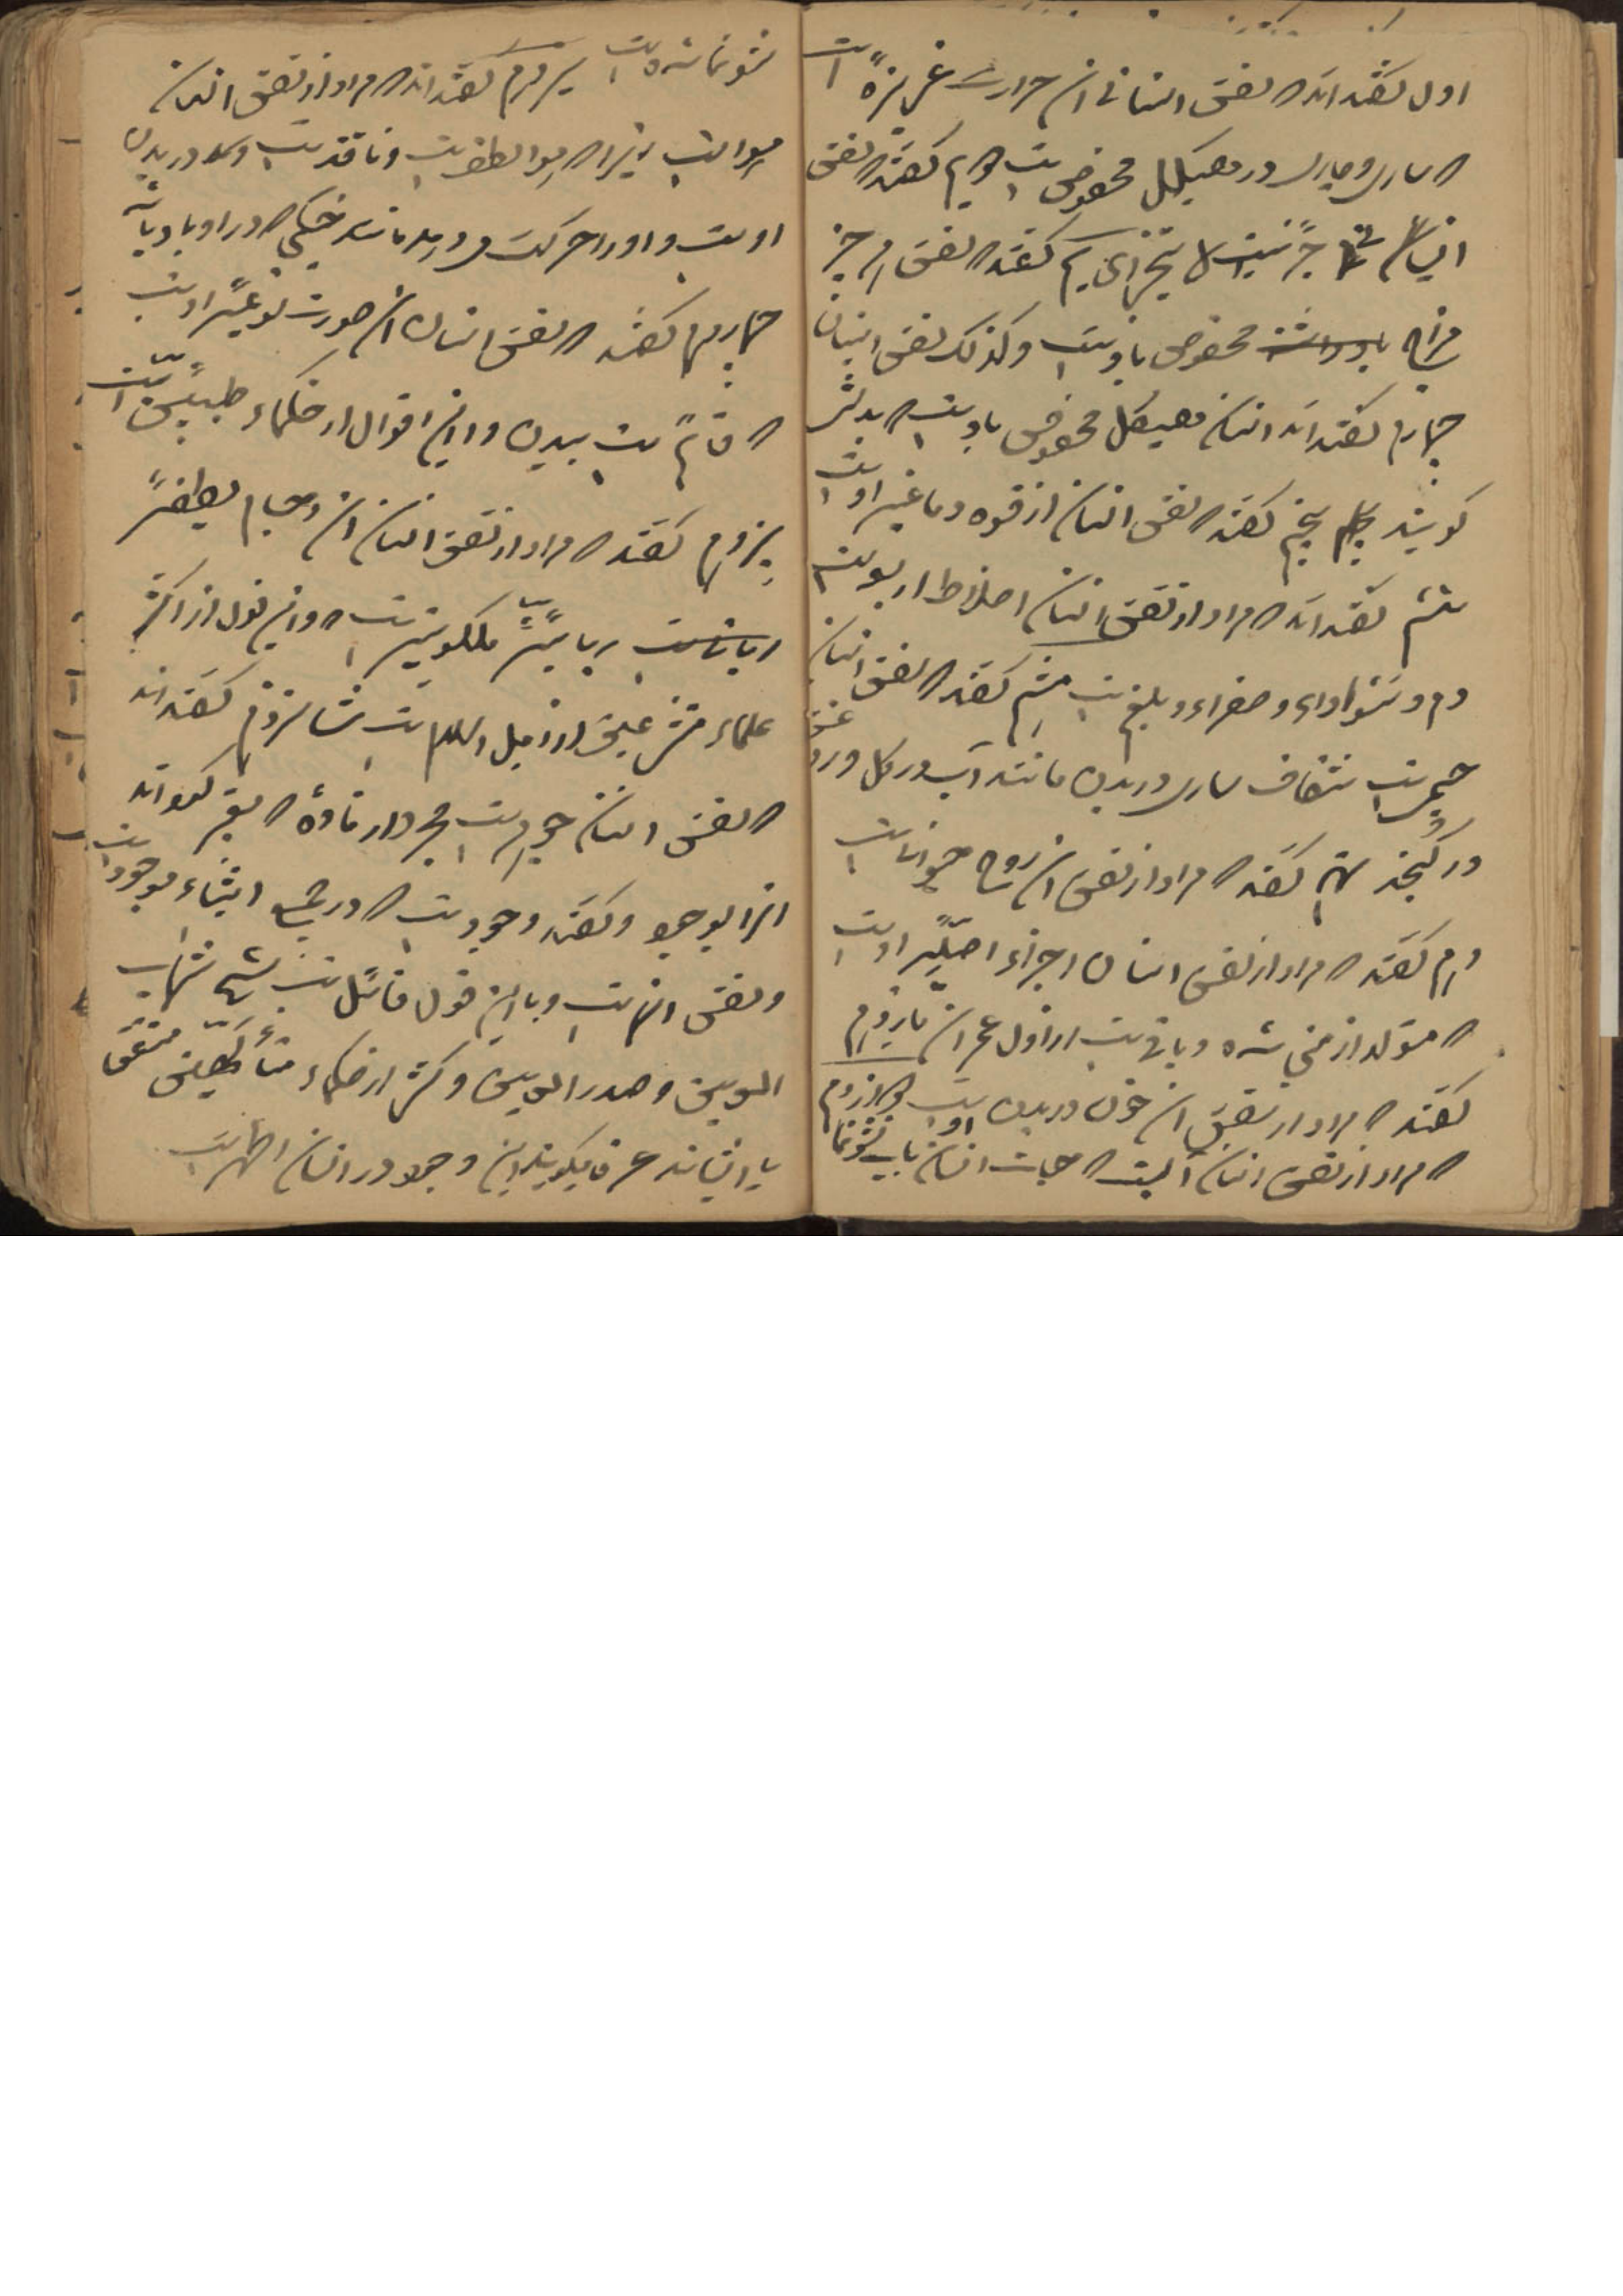 اول گفته‌اند که نفس انسانی آن حرارت غریزهٔ است
که ساری و جاری در هیکل مخصوص است دویم گفته که نفس
انسانی جزئیست لا یتجزای سیم گفته که نفس هر چیز
مزاج مخصوص باوست و کذلک نفس انسان
چهارم گفته‌اند انسان هیکل مخصوص باوست که بدنش
گویند پنجم گفته که نفس انسان از قوه دماغیه اوست
ششم گفته‌اند که مراد از نفس انسان اخلاط اربع است
دم و سوداوی و صفراء و بلغم است گفته که نفس انسان
جسمی است شفاف ساری در بدن مانند آب در گل و روغن
در کنجد نهم گفته که مراد از نفس آن روح حیوانیست
دهم گفته که مراد از نفس انسان اجزاء اصلیه اوست
که متولد از منی شده و باقیست از اول عمر آن یازدهم
گفته که مراد از نفس آن خون در بدن اوست دوازدهم
که مراد از نفس انسان آبست که حیات انسان بآب نشو نما
نشو نما شده است سیزدهم گفته‌اند که مراد از نفس انسان
هوا است زیرا که هوا لطف است و نافذ است در بدن
اوست و او را حرکت میدهد مانند خیکی که در او باد باشد
چهاردهم گفته که نفس انسان آن صورت نوعیه اوست
که قائم است ببدن و این اقوال از حکماء طبیعیین است
پانزدهم گفته که مراد از نفس انسان آن اجسام لطیفهٔ
ربانیهٔ ملکوتیه است و این قول از اکثر
علماء متشرعین از اهل اسلام است شانزدهم گفته‌اند
که نفس انسان جوهریست مجرد از ماده که تعبیر کرده‌اند
انرا بوجود و گفته وجود است که در جمیع اشیاء موجود است
و نفس انهاست و باین قول قائل است شیخ شهاب
الدین و صدر الدین و کثیر از حکماء متألهین متفق
با ایشانند عرفا میگویند این وجود در انسان اظهر است